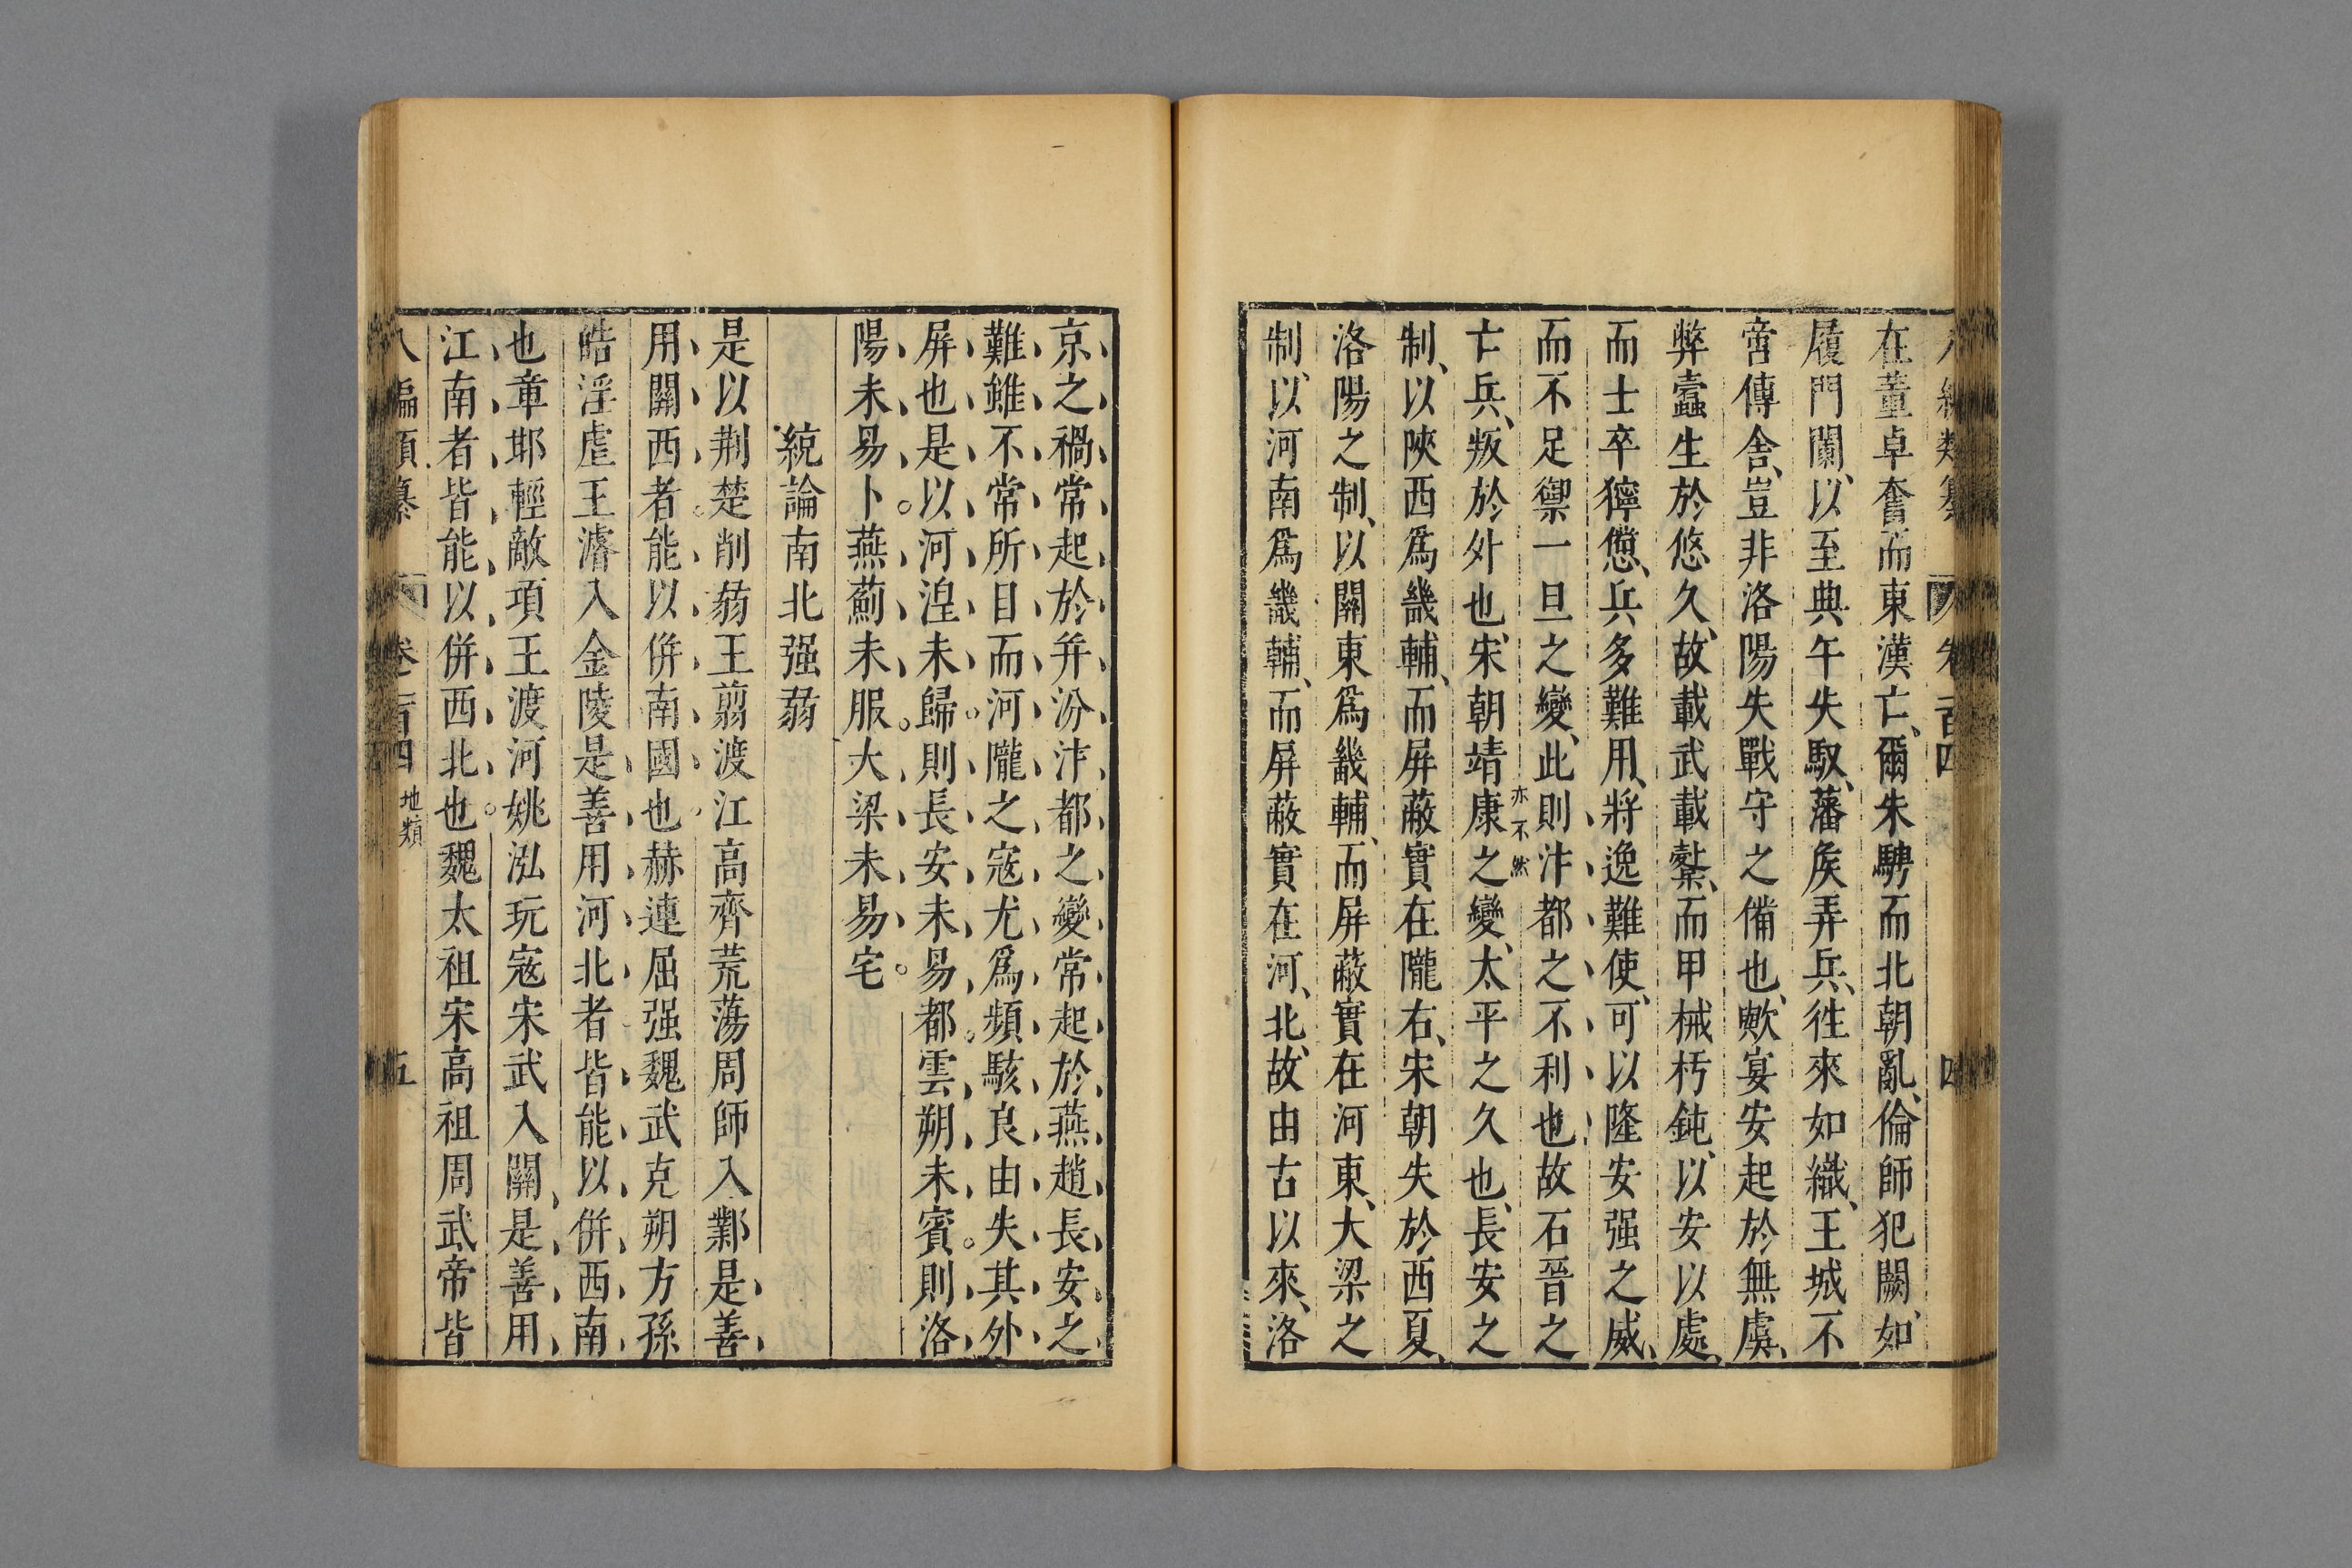 八編類纂 卷一百四 四
在董卓奮而東漢亡、爾朱騁而北朝亂、倫師犯闕、如
履門闌、以至典午失馭、藩矦弄兵、徃來如織、王城不
啻傳舍、豈非洛陽失戰守之備也、歟宴安起於無虞、
弊蠹生於悠久、故載武載櫜、而甲械朽鈍、以安以處、
而士卒獰憊、兵多難用、將逸難使、可以隆安强之威、
而不足禦一旦之變、此則汴都之不利也、故石晉之
亦不然
亡兵、叛於外也、宋朝靖康之變、太平之久也、長安之
制、以陝西爲畿輔、而屏蔽實在隴右、宋朝失於西夏、
洛陽之制、以關東爲畿輔、而屏蔽實在河東、大梁之
制、以河南爲畿輔、而屏蔽實在河北、故由古以來、洛
京之禍常起於幷汾汴都之變常起於燕趙長安之
難雖不常所目而河隴之寇尤爲頻駭良由失其外
屏也是以河湟未歸則長安未易都雲朔未賓則洛
陽未易卜燕薊未服大梁未易宅
統論南北强弱
是以荆楚削弱王翦渡江高齊荒蕩周師入鄴是善
用關西者能以併南國也赫連屈强魏武克朔方孫
皓淫虐王濬入金陵是善用河北者皆能以併西南
也章邯輕敵項王渡河姚泓玩寇宋武入關是善用
江南者皆能以併西北也魏太祖宋高祖周武帝皆
八編類纂 卷一百四 地類 五